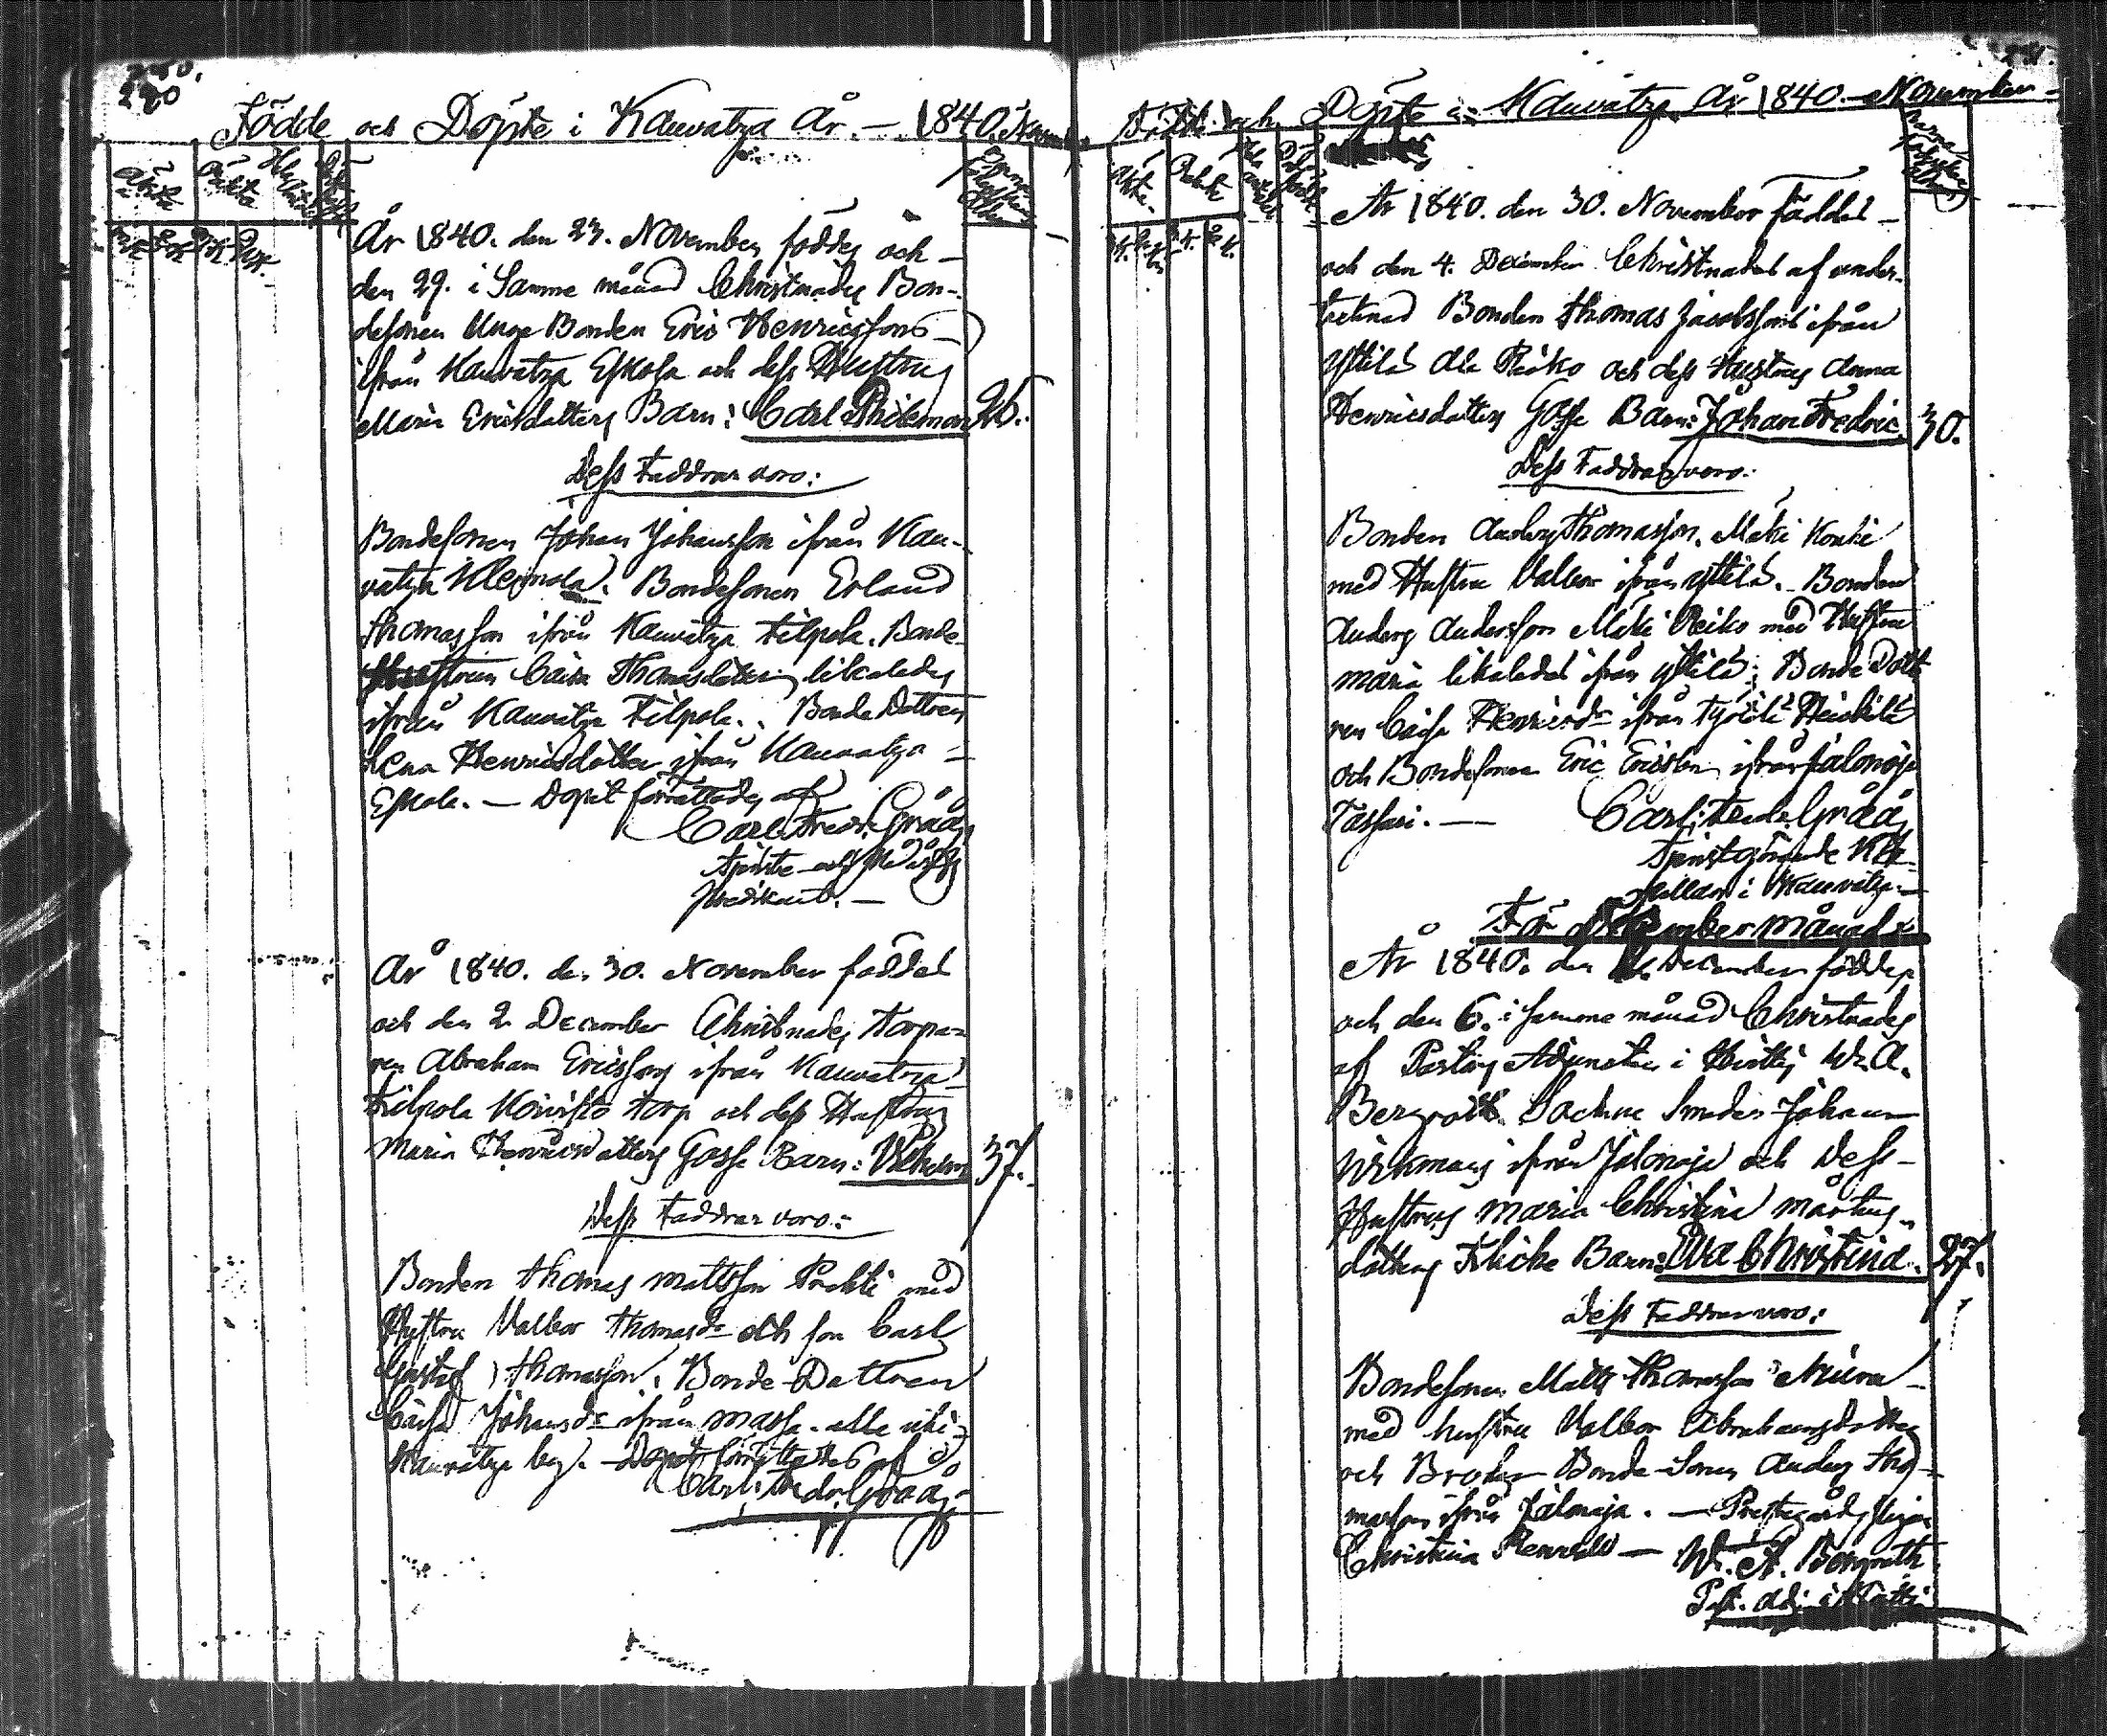 290
Födde och Döpte i Kauvatza År. — 1840. November
År 1840. den 23. November föddes och
den 29. i Samma månad Christnades Bon-
desonen Unge Bonden Eric Henricssons
ifrån Kauvatza Eskola och dess Hustrus
Maria Ericsdotters Barn: Carl Philemon 26.
Dess Faddrar voro:
Bondesonen Johan Johansson ifrån Kau-
vatza Klemola. Bondesonen Erland
Thomasson ifrån Kauvatza Filpola. Bonde-
Hustrun Caisa Thomasdotter likaledes
ifrån Kauvatza Filpola. Bonde Dottren
Lena Henricsdotter ifrån Kauvatza
Eskola. — Dopet förrättades af
Carl Fredr. Gråå,
Predikant. —
År 1840. den 30. November föddes
och den 2 December Christnades Torpa-
ren Abraham Ericssons ifrån Kauvatza
Filpola Koivisto torp och dess Hustrus
Maria Henricsdotters Gosse Barn: Vilhelm 37.
Dess Faddrar voro:
Bonden Thomas Mattsson Prakti med
Hustru Valbor Thomasdr och son Carl
Gustaf Thomasson. Bonde-Dottren
Caisa Johansdr ifrån Massa. alla uti
Kauvatza by. — Dopet förrättades af
Carl Fredr. Gråå,
291.
Födde och Döpte i Kauvatza År 1840. — November
År 1840. den 30. November föddes
och den 4. December Christnades af under-
tecknad Bonden Thomas Jacobssons ifrån
Yttilä Ala Reiko och dess Hustrus Anna
Henricsdotters Gosse Barn: Johan Fredric. 30.
Dess Faddrar voro:
Bonden Anders Thomasson Mäki Kouki
med Hustru Valbor ifrån Yttilä. Bonden
Anders Andersson Mäki Reiko med Hustru
Maria likaledes ifrån Yttilä: Bonde Dott-
ren Caisa Henricsdr ifrån Heickilä
och Bondesonen Eric Ericsson ifrån Jalonoja
Tassari. — Carl Fredr. Gråå,
Tjenstgörande Ka-
pellan i Kauvatza. —
För December Månad
År 1840. den December föddes
och den 6. i samma månad Christnades
af Pastors Adjuncten i Hvittis W. A.
Bergroth Sockne Smeden Johan
Wikmans ifrån Jalonoja och Dess
Hustrus Maria Christina Mårtens-
dotters Flicke Barn: Eva Christina. 27.
Dess Faddrar voro:
Bondesonen Matts Thomasson
med hustru Valbor Abrahamsdotter
och Broder Bonde-Sonen Anders Tho-
masson ifrån Jalonoja. — Prestgårds Pigan
Christina — W. A. Bergroth
Past. Adj. i Hvittis